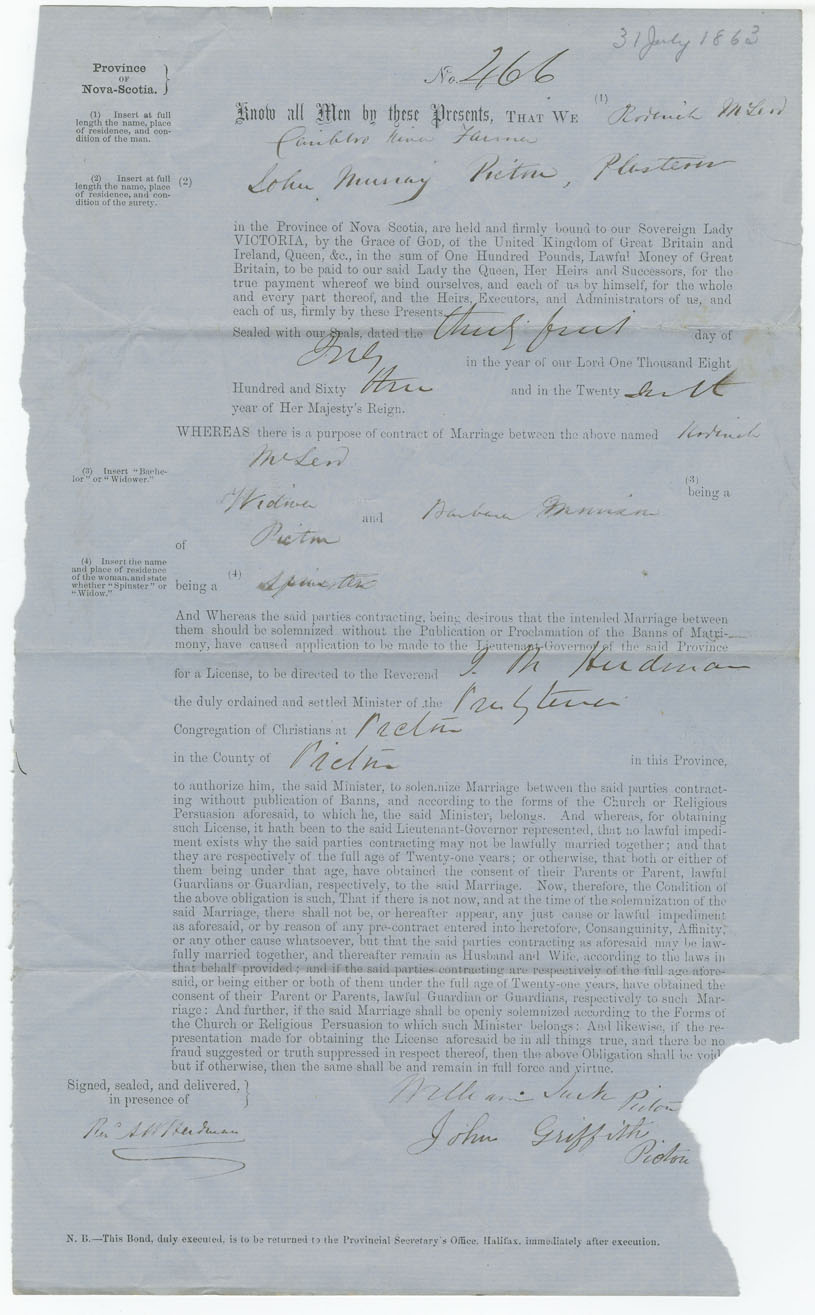 31 July 1863
Province
OF
Nova-Scotia.
No. 466
(1) Insert at full
length the name, place
of residence, and con-
dition of the man.
Know all Men by these Presents, THAT WE (1) Roderick McLeod
Cariboo River Farmer
(2) Insert at full
length the name, place
of residence, and con-
dition of the surety.
(2) John Murray Pictou, Plasterer
in the Province of Nova Scotia, are held and firmly bound to our Sovereign Lady
VICTORIA, by the Grace of GOD, of the United Kingdom of Great Britain and
Ireland, Queen, &c., in the sum of One Hundred Pounds, Lawful Money of Great
Britain, to be paid to our said Lady the Queen, Her Heirs and Successors, for the
true payment whereof we bind ourselves, and each of us by himself, for the whole
and every part thereof, and the Heirs, Executors, and Administrators of us, and
each of us, firmly by these Presents.
Sealed with our Seals, dated the thirty first day of
July in the year of our Lord One Thousand Eight
Hundred and Sixty three and in the Twenty
year of Her Majesty's Reign.
WHEREAS there is a purpose of contract of Marriage between the above named Roderick
McLeod
(3) Insert "Bache-
lor" or "Widower."
(3) being a
Widower and Barbara Morrison
of Pictou
(4) Insert the name
and place of residence
of the woman, and state
whether "Spinster" or
"Widow."
being a (4) Spinster
And Whereas the said parties contracting, being desirous that the intended Marriage between
them should be solemnized without the Publication or Proclamation of the Banns of Matri-
mony, have caused application to be made to the Lieutenant-Governor of the said Province
for a License, to be directed to the Reverend Herdman
the duly ordained and settled Minister of the Presbyterian
Congregation of Christians at Pictou
in the County of Pictou in this Province,
to authorize him, the said Minister, to solemnize Marriage between the said parties contract-
ing without publication of Banns, and according to the forms of the Church or Religious
Persuasion aforesaid, to which he, the said Minister, belongs. And whereas, for obtaining
such License, it hath been to the said Lieutenant-Governor represented, that no lawful impedi-
ment exists why the said parties contracting may not be lawfully married together; and that
they are respectively of the full age of Twenty-one years; or otherwise, that both or either of
them being under that age, have obtained the consent of their Parents or Parent, lawful
Guardians or Guardian, respectively, to the said Marriage. Now, therefore, the Condition of
the above obligation is such, That if there is not now, and at the time of the solemnization of the
said Marriage, there shall not be, or hereafter appear, any just cause or lawful impediment
as aforesaid, or by reason of any pre-contract entered into heretofore, Consanguinity, Affinity,
or any other cause whatsoever, but that the said parties contracting as aforesaid may be law-
fully married together, and thereafter remain as Husband and Wife, according to the laws in
that behalf provided; and if the said parties contracting are respectively of the full age afore-
said, or being either or both of them under the full age of Twenty-one years, have obtained the
consent of their Parent or Parents, lawful Guardian or Guardians, respectively to such Mar-
riage: And further, if the said Marriage shall be openly solemnized according to the Forms of
the Church or Religious Persuasion to which such Minister belongs: And likewise, if the re-
presentation made for obtaining the License aforesaid be in all things true, and there be no
fraud suggested or truth suppressed in respect thereof, then the above Obligation shall be void,
but if otherwise, then the same shall be and remain in full force and virtue.
Signed, sealed, and delivered,
in presence of
William Pictou
Revd A W Herdman
John Griffith
Pictou
N. B.—This Bond, duly executed, is to be returned to the Provincial Secretary's Office, Halifax, immediately after execution.